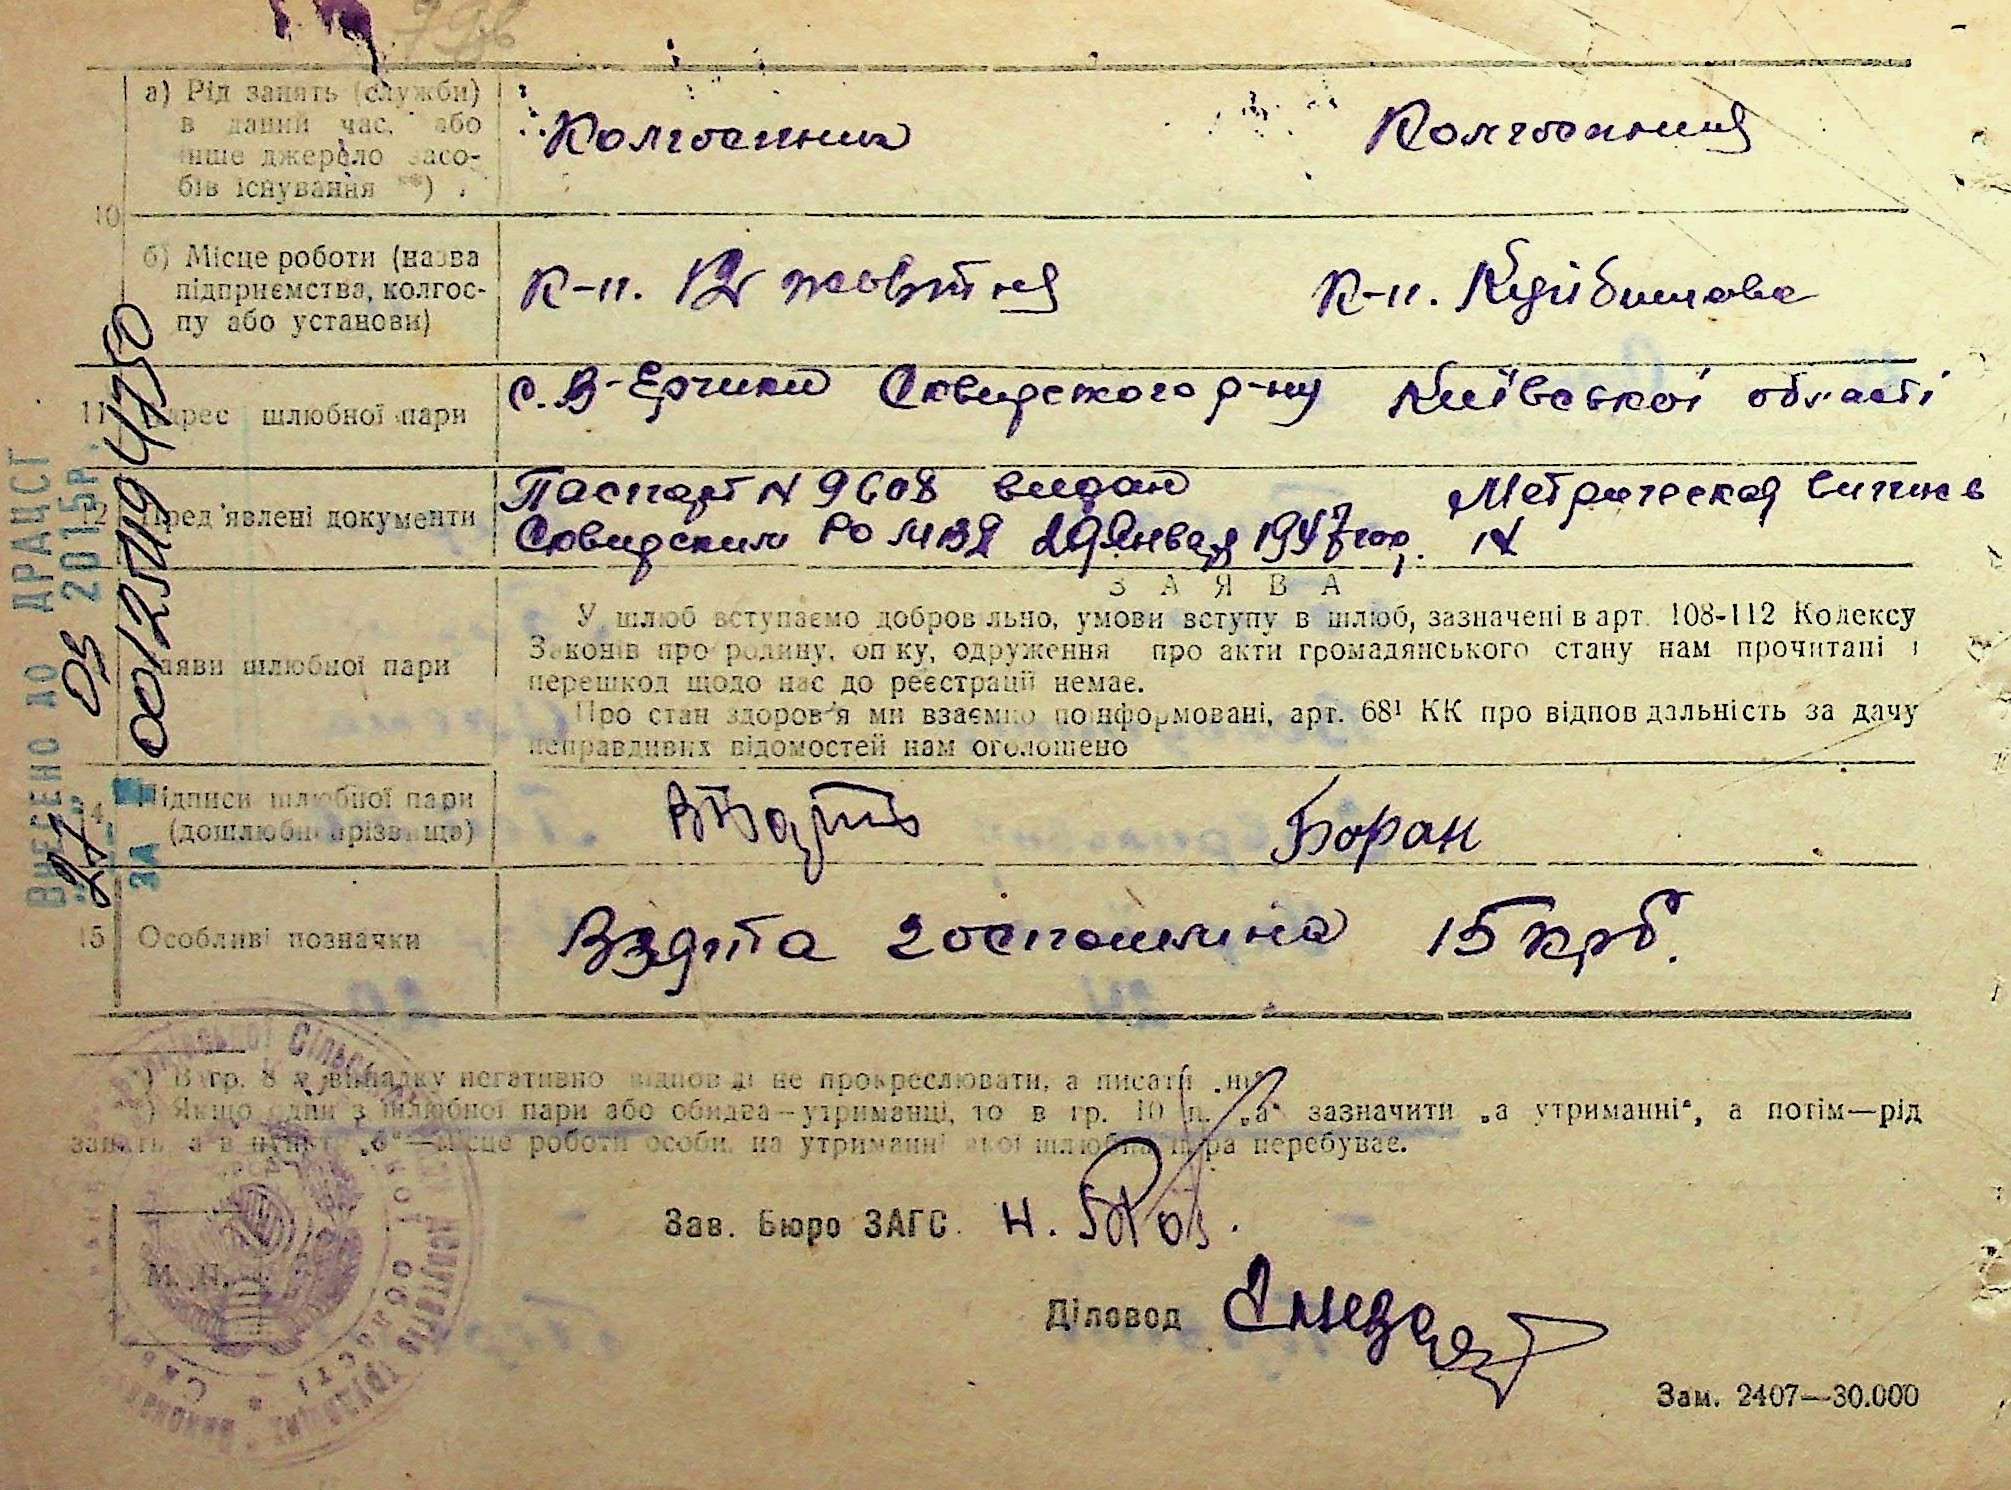 а) Рід занять (служби)
в даний час, або
інше джерело засо-
бів існування **) .
Колгоспник
Колгоспниця
10
б) Місце роботи (назва
підприємства, колгос-
пу або установи)
К-п. жовтня
К-п. Куйбишова
11 Адрес шлюбної пари
с. В-Ерчики Сквирского р-ну Київської області
12 Пред'явлені документи
Паспорт N 9608 видан
Сквирским РО МВД 29 Января 1947 год.
Метрическая випись
N
ЗАЯВА
У шлюб вступаємо добровільно, умови вступу в шлюб, зазначені в арт. 108-112 Кодексу
Законів про родину, опіку, одруження про акти громадянського стану нам прочитані і
перешкод щодо нас до реєстрації немає.
Про стан здоров'я ми взаємно поінформовані, арт. 68¹ КК про відповідальність за дачу
неправдивих відомостей нам оголошено
Заяви шлюбної пари
14 Підписи шлюбної пари
(дошлюбні прізвища)
Боран
15 Особливі позначки
Взята госпошлина 15 крб.
*) В гр. 8 у випадку негативно відповіді не прокреслювати, а писати „ні“
**) Якщо один з шлюбної пари або обидва—утриманці, то в гр. 10 п. „а“ зазначити „а утриманні“, а потім—рід
занять, а в пункті „б“—місце роботи особи, на утриманні якої шлюбна пара перебуває.
Зав. Бюро ЗАГС
М. П.
Діловод
Зам. 2407—30.000
ВНЕСЕНО ДО ДРАЦСГ
27 05 2015р.
ЗА № 00125119 4750